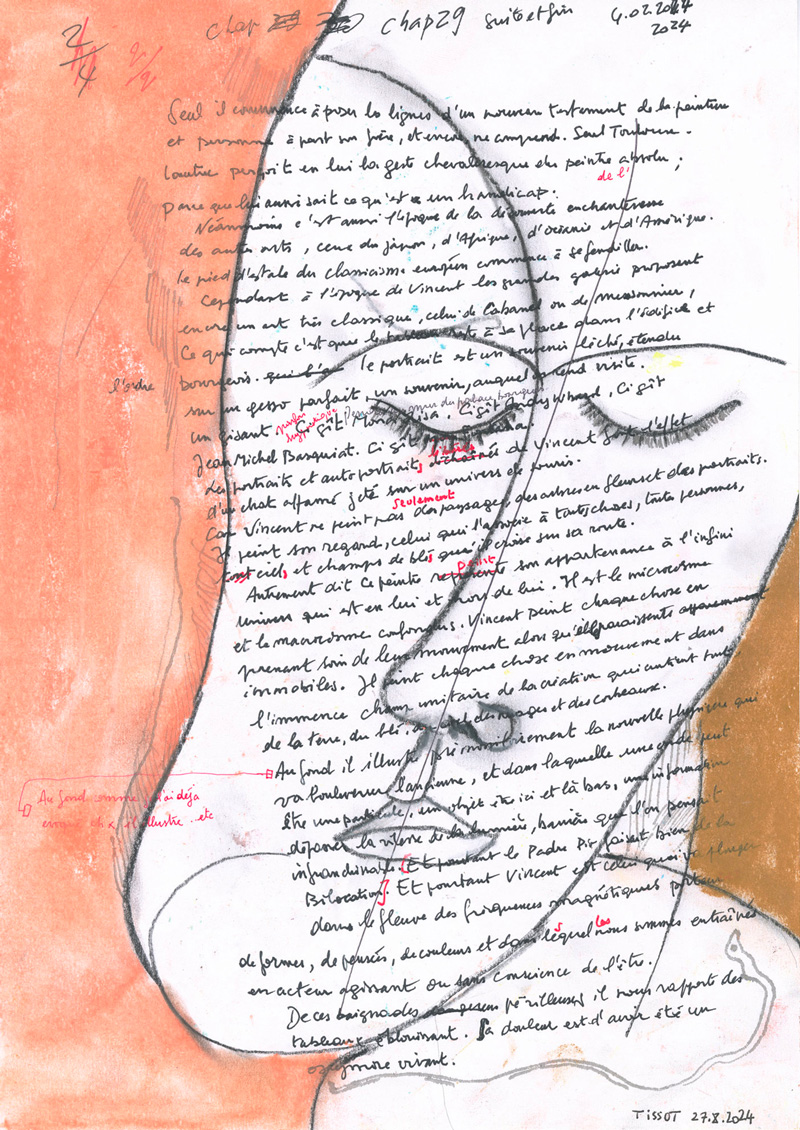 2/4
chap chap 29 suite et fin 4.02.2024
2024
Seul il commence à poser les lignes d'un nouveau testament de la peinture
et personne à part son frère, et encore, ne comprend. Seul Toulouse-
Lautrec perçoit en lui la geste chevaleresque du peintre absolu ;
de l'
parce que lui aussi sait ce qu'est un handicap.
Néanmoins c'est aussi l'époque de la découverte enchanteresse
des autres arts, ceux du japon, d'Afrique, d'océanie et d'Amérique.
le pied d'estale du classicisme européen commence à se fendiller.
Cependant à l'époque de Vincent les grandes galeries proposent
encore un art très classique, celui de Cabanel ou de Meissonnier,
Ce qui compte c'est que le se place dans l'édifice et
l'ordre bourgeois. le portrait est un souvenir léché, étendu
sur un gesso parfait, un souvenir, auquel rend visite.
un gisant. Ci gît Mona Lisa. Ci gît Andy Warhol, Ci gît
Jean Michel Basquiat. Ci gît
Les portraits et autoportraits de Vincent font l'effet
d'un chat affamé jeté sur un univers de souris.
seulement
Car Vincent ne peint pas des paysages, des arbres en fleurs et des portraits.
Il peint son regard, celui qui l'associe à toutes choses, toutes personnes,
ciels et champs de blés qu'il croise sur sa route.
peint
Autrement dit ce peintre représente son appartenance à l'infini
univers qui est en lui et hors de lui. Il est le microcosme
et le macrocosme confondus. Vincent peint chaque chose en
prenant soin de leur mouvement alors qu'elles paraissent apparemment
immobiles. Il peint chaque chose en mouvement dans
l'immence champ unitaire de la création qui contient tout
de la terre, du blé, du ciel, des nuages et des corbeaux.
Au fond il illustre prémonitoirement la nouvelle physique qui
va bouleverser l'ancienne, et dans laquelle une onde peut
Au fond comme j'ai déjà
évoqué ch x il illustre ..etc
être une particule, un objet être ici et là bas, une information
dépasser la vitesse de la lumière, barrière que l'on pensait
infranchissable. Et pourtant le Padre Pio faisait bien de la
Bilocation. Et pourtant Vincent est celui qui va plonger
dans le fleuve des fréquences magnétiques porteur
de formes, de pensées, de couleurs et dans lesquelles nous sommes entraînés
en acteur agissant ou sans conscience de l'être.
De ces baignades périlleuses il nous rapporte des
tableaux éblouissant. Sa douleur est d'avoir été un
vivant.
TISSOT 27.8.2024